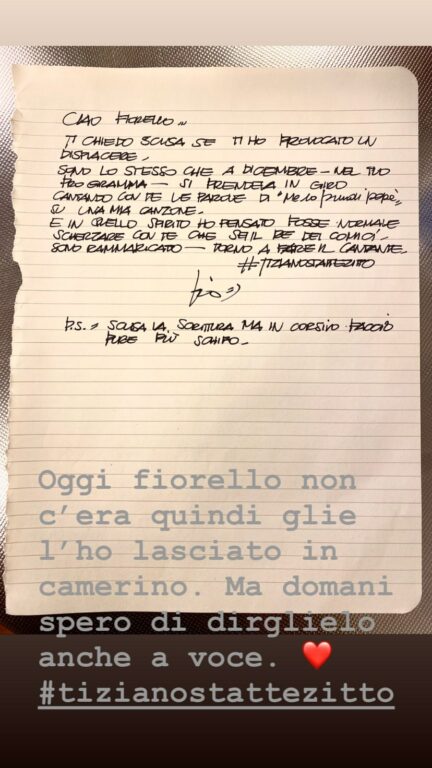 CIAO FIORELLO..
TI CHIEDO SCUSA SE TI HO PROVOCATO UN
DISPIACERE.
SONO LO STESSO CHE A DICEMBRE - NEL TUO
PROGRAMMA - SI PRENDEVA IN GIRO
CANTANDO CON TE LE PAROLE DI "Me lo prendi papà"
SU UNA MIA CANZONE.
E IN QUELLO SPIRITO HO PENSATO FOSSE NORMALE
SCHERZARE CON TE CHE SEI IL RE DEI COMICI.
SONO RAMMARICATO - TORNO A FARE IL CANTANTE.
#TIZIANOSTATTEZITTO
P.S. = SCUSA LA SCRITTURA MA IN CORSIVO FACCIO
PURE PIÙ SCHIFO.
Oggi fiorello non
c'era quindi glie
l'ho lasciato in
camerino. Ma domani
spero di dirglielo
anche a voce. ❤️
#tizianostattezitto